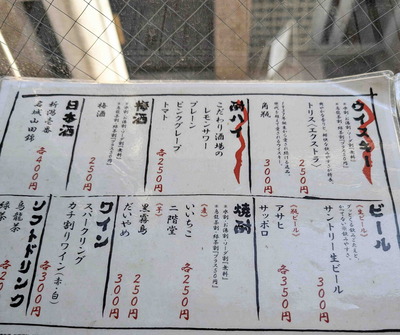 ウイスキー
トリス〈エクストラ〉
250円
角瓶
300円
酎ハイ
こだわり酒場の
レモンサワー
プレーン
ピンクグレープ
トマト
各250円
梅酒
梅酒
250円
日本酒
新潟壱番
名城山田錦
各400円
ビール
〈生ビール〉
サントリー生ビール
300円
〈瓶ビール〉
アサヒ
サッポロ
各350円
焼酎
〈麦〉
いいちこ
二階堂
各250円
〈芋〉
黒霧島
250円
だいやめ
300円
ワイン
スパークリング
カチ割りワイン〈赤・白〉
各300円
ソフトドリンク
烏龍茶
緑茶